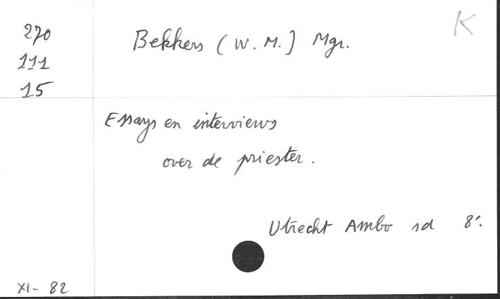 K
270
111
15
Bekkers (W. M.) Mgr.
Essays en interviews
over de priester.
Utrecht Ambo sd 8°.
XI- 82